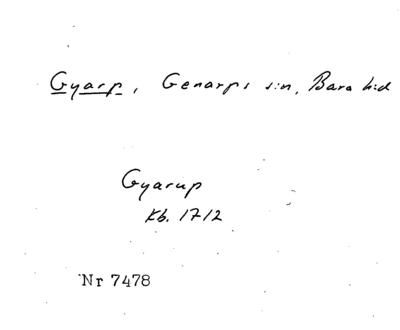 Gyarp, Genarps s:n, Bara h:d
Gyarup
Kb. 1712
Nr 7478